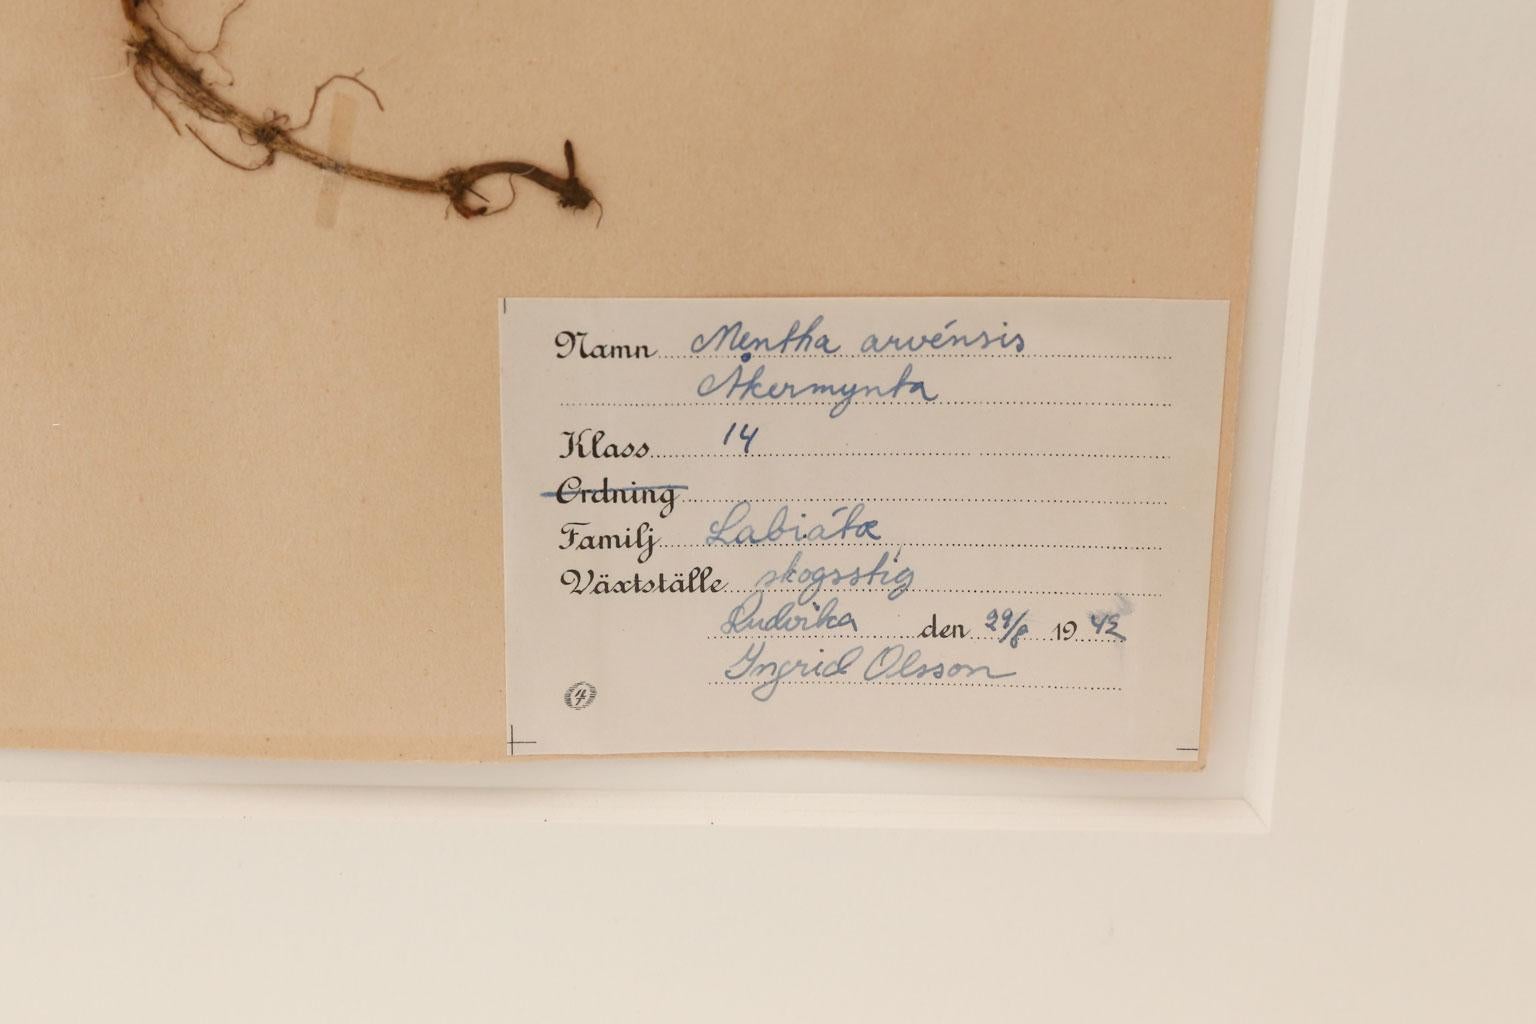 Namn Mentha arvénsis
Åkermynta
Klass 14
Ordning
Familj Labiátæ
Växtställe skogsstig
Ludvika den 29/8 1942
Ingrid Olsson
4